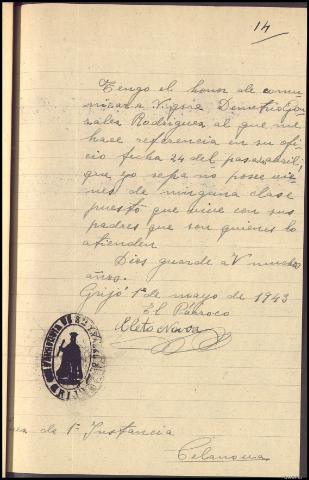 14
Tengo el honor de comu-
nicar a V. que Demetrio Gon-
zalez Rodriguez al que me
hace referencia en su ofi-
cio fecha 24 del pasado abril,
que yo sepa no posee vie-
nes de ninguna clase
puesto que vive con sus
padres que son quienes lo
atienden
Dios guarde a V muchos
años.
Grijó 1º de mayo de 1943
El Párroco
Cleto Novoa
PARROQUIA DE
GRIJO
de 1ª Instancia
Celanova